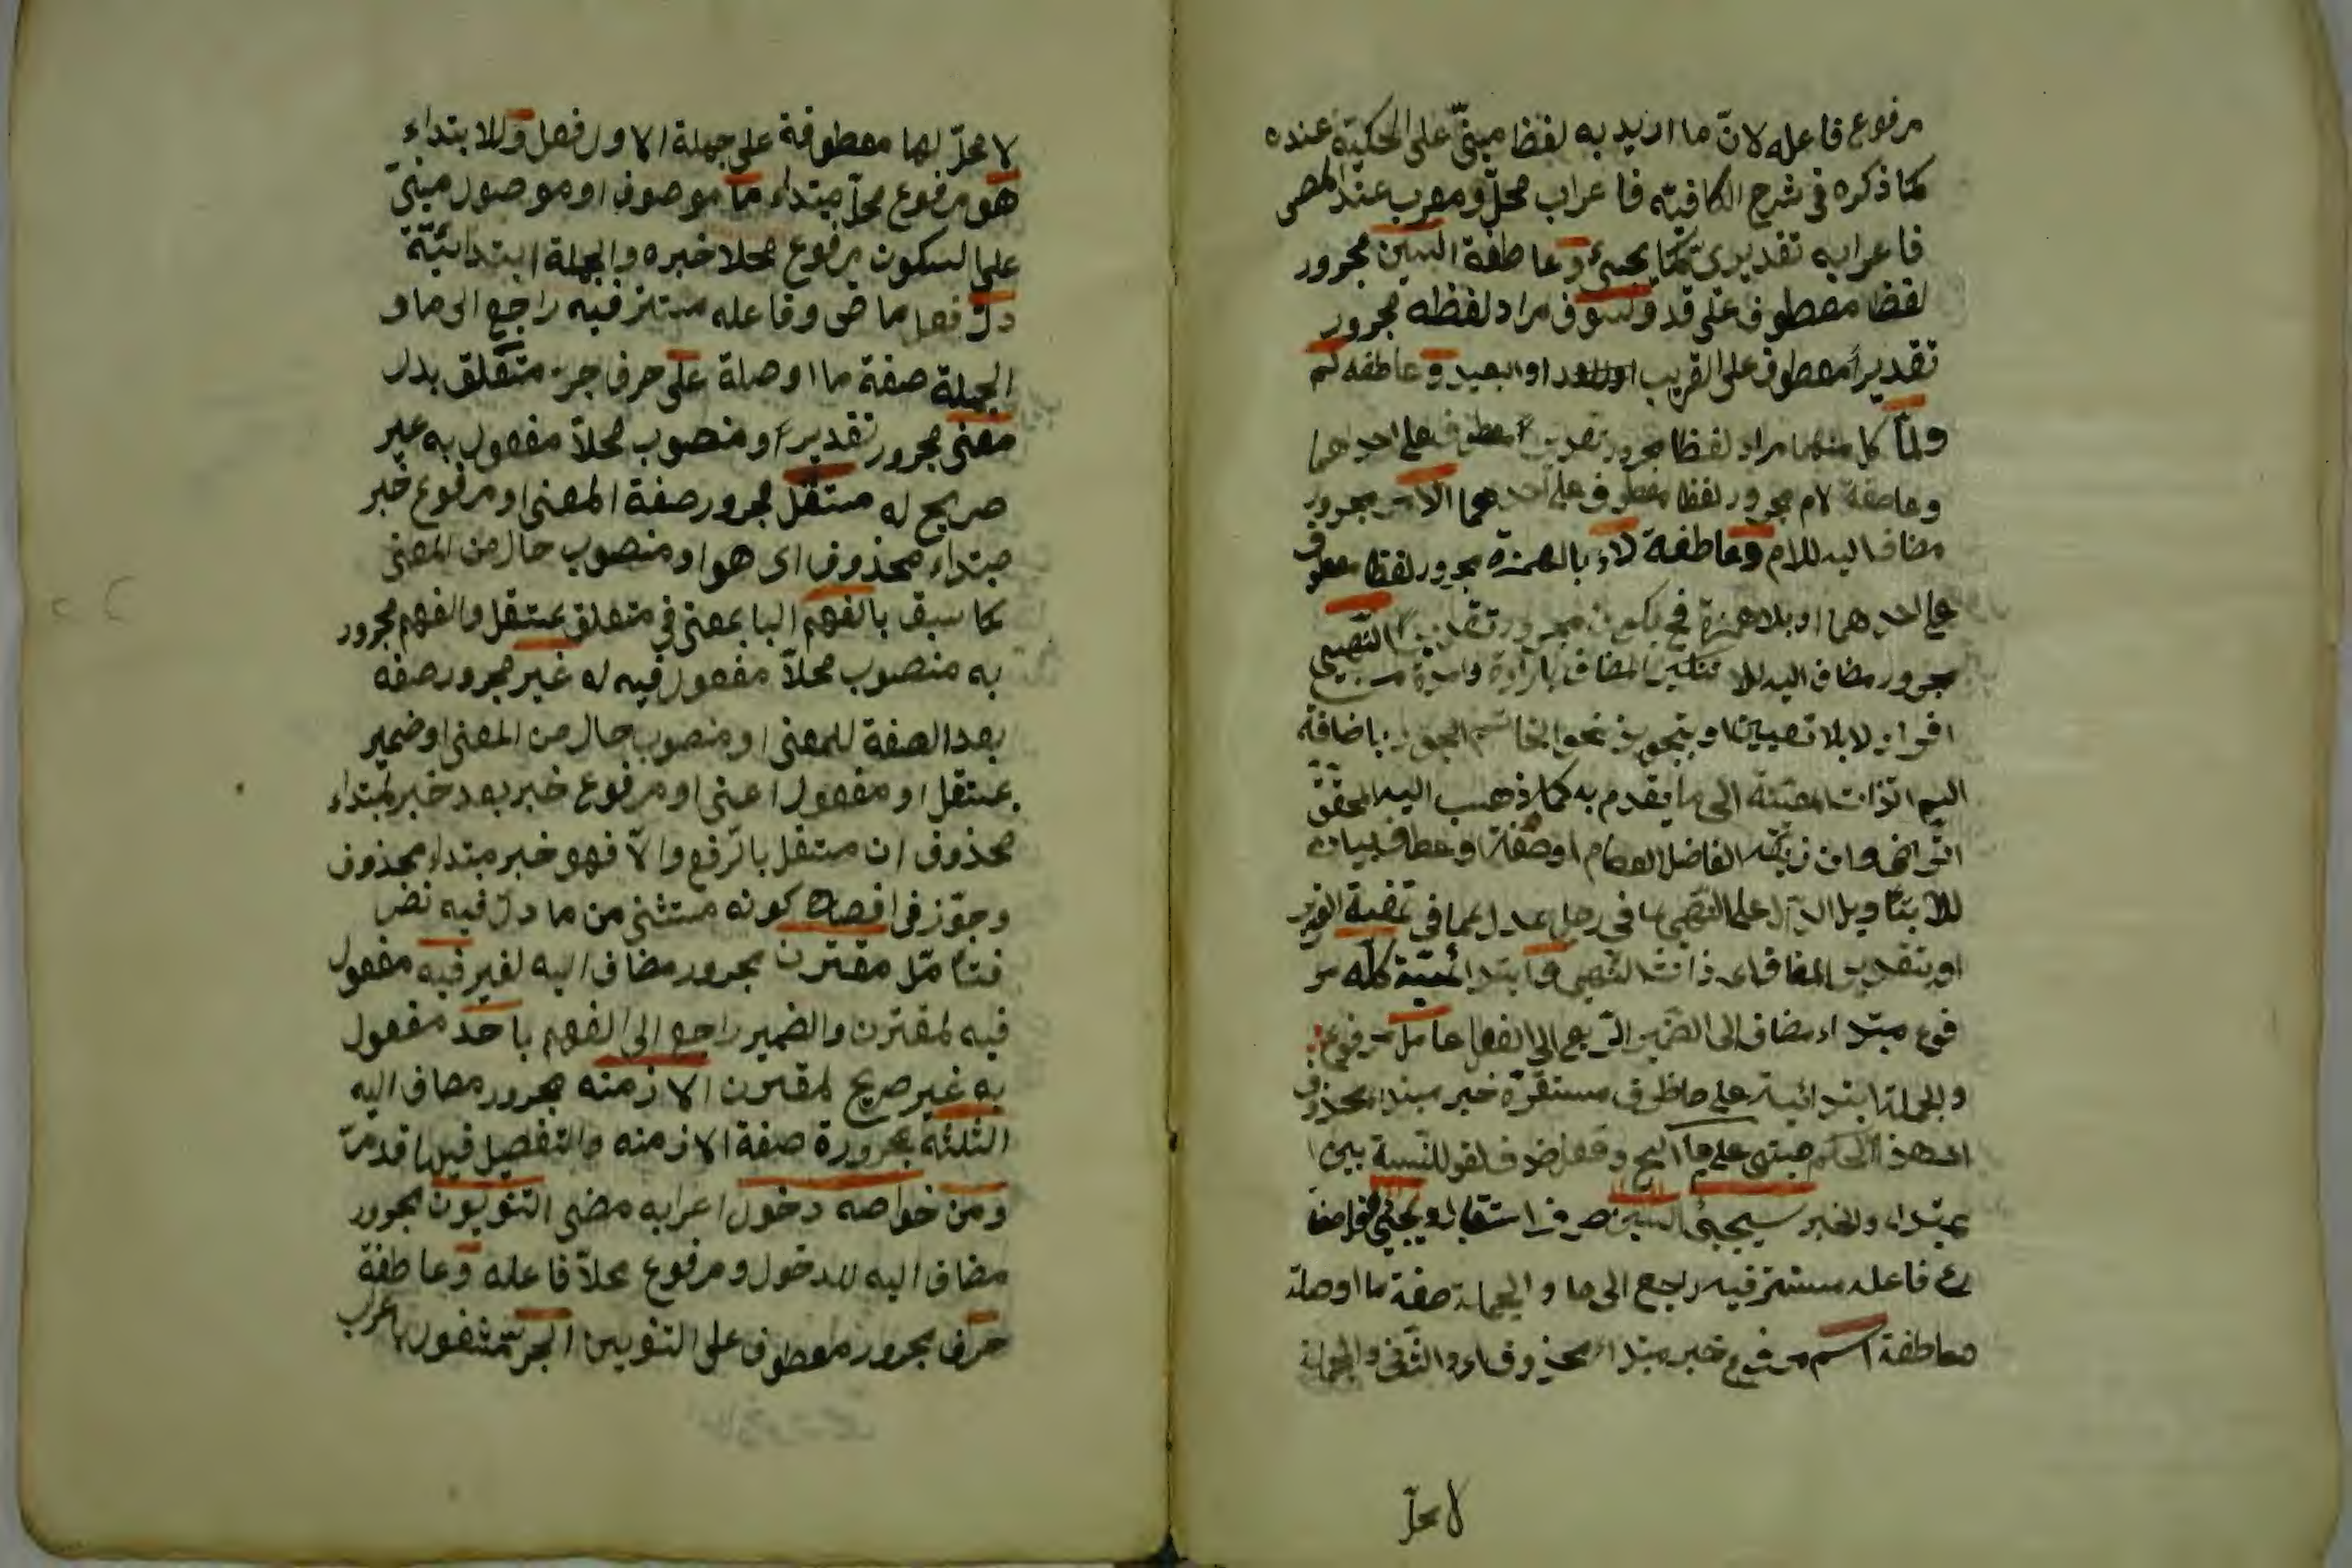 مرفوع فاعله لانّ ما اريد به لفظا مبنىّ على الحكيّة عنده
كما ذكره فى شرح الكافيّه فاعراب محلّ و معرب عند المص
فاعرابه تقديرى كما يجىء و عاطفة السين مجرور
لفظا معطوف على قد و سوف مراد لفظه مجرور
تقديراً معطوف على القريب او البعيد و عاطفه لم
ولمّا كل منهما مراد لفظا مجرور تقديراً معطوف على احدهما
وعاطفة لام مجرور لفظا معطوف على احدهما الامر مجرور
مضاف اليه للام وعاطفة لاء بالهمزة مجرور لفظا معطوف
على احدهما او بلا همزة فح يكون مجرور تقديراً النّهى
مجرور مضاف اليه للا بتنكير المضاف بارادة واحدة من
افراد لا بلا تعيين او بتجويز نحو باضافة
اليم الذات المعينة الى ما يقدم به كما ذهب اليه المحقق
الرضى وان زيّفه الفاضل العصام او صفة او عطف بيان
للا بتاويل الدال على النهى ما فى رجل عدل عما فى
او بتقدير المضاف اى ذات النهى و ابتدائيّة كله مر
فوع مبتداء مضاف الى الضمير الراجع الى الفعل عامل مرفوع
والجملة ابتدائية على ما ظرف مستقرّة خبر مبتداء محذوف
اى هذا الحكم مبنى على ما
مبتداء والخبر سيجىء السين حرف استقبال و يجىء فعل مضا
رع فاعله مستتر فيه راجع الى ما و الجملة صفة ما او صلة
وعاطفة اسم مرفوع خبر مبتداء محذوف اى والثانى والجملة
لا محلّ
لا محلّ لها معطوفة على جملة الاول فعل و للابتداء
هو مرفوع محلّ مبتداء ما موصوف او موصول مبنىّ
على السكون مرفوع محلا خبره و الجملة ابتدائيّة
دلّ فعل ماض و فاعله مستتر فيه راجع الى ما و
الجملة صفة ما او صلة على حرف جرّ متعلق بدل
معنى مجرور تقديراً و منصوب محلاً مفعول به غير
صريح له مستقل مجرور صفة المعنى او مرفوع خبر
مبتداء محذوف اى هو او منصوب حال من المعنى
كما سبق بالفهم البا بمعنى فى متعلق بمستقل والفهم مجرور
به منصوب محلاً مفعول فيه له غير مجرور صفه
بعد الصفة للمعنى او منصوب حال من المعنى او ضمير
مستقل او مفعول اعنى او مرفوع خبر بعد خبر لمبتداء
محذوف ان مستقل بالرفع و الاّ فهو خبر مبتداء محذوف
و جوّز فى افصاح كونه مستثنى من ما دلّ فيه نضر
فتاً مّل مقترن مجرور مضاف اليه لغير فيه مفعول
فيه لمقترن والضمير راجع الى الفهم باحد مفعول
به غير صريح لمقترن الازمنه مجرور مضاف اليه
الثلثه مجرورة صفة الازمنه والتفصيل فيما قدمرّ
ومن خواصه دخول اعرابه مضى التنوين مجرور
مضاف اليه للدخول و مرفوع محلاّ فاعله و عاطفة
حرف مجرور معطوف على التنوين الجرّ مشغول باعراب